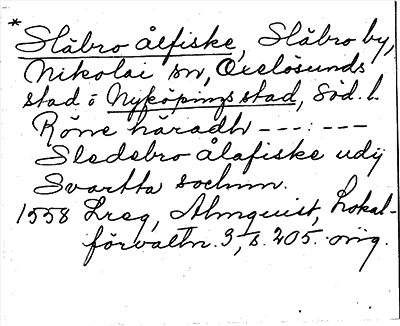 * Släbro ålfiske, Släbro by,
Nikolai sn, Oxelösunds
stad o Nyköpings stad, Söd. l.
Röne häradh ---:---
Sledebro ålafiske udij
Svartta sochnn.
1558 Lreg, Almquist, Lokal-
förvaltn. 3, s. 205. orig.